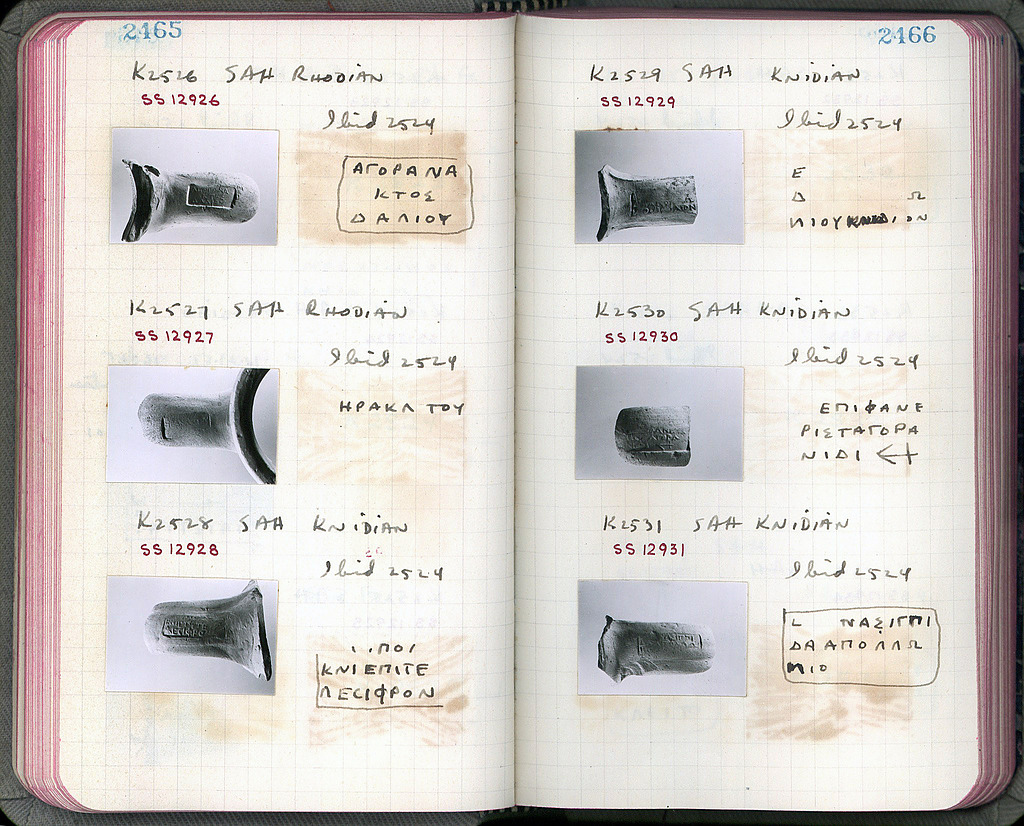 2465
K2526 SAH RHODIAN
SS 12926
Ibid 2524
ΑΓΟΡΑΝΑ
ΚΤΟΣ
ΔΑΛΙΟΥ
K2527 SAH RHODIAN
SS 12927
Ibid 2524
ΗΡΑΚΛ ΤΟΥ
K2528 SAH KNIDIAN
SS 12928
Ibid 2524
..ΠΟΙ
ΚΝΙΕΠΙΤΕ
ΛΕCΙΦΡΟΝ
2466
K2529 SAH KNIDIAN
SS 12929
Ibid 2524
Ε
Δ Ω
ΝΙΟΥ
K2530 SAH KNIDIAN
SS 12930
Ibid 2524
ΕΠΙΦΑΝΕ
ΡΙΣΤΑΓΟΡΑ
ΝΙΔΙ
K2531 SAH KNIDIAN
SS 12931
Ibid 2524
Ι ΝΑΣΙΠΠΙ
ΔΑΑΠΟΛΛΩ
ΝΙΟ